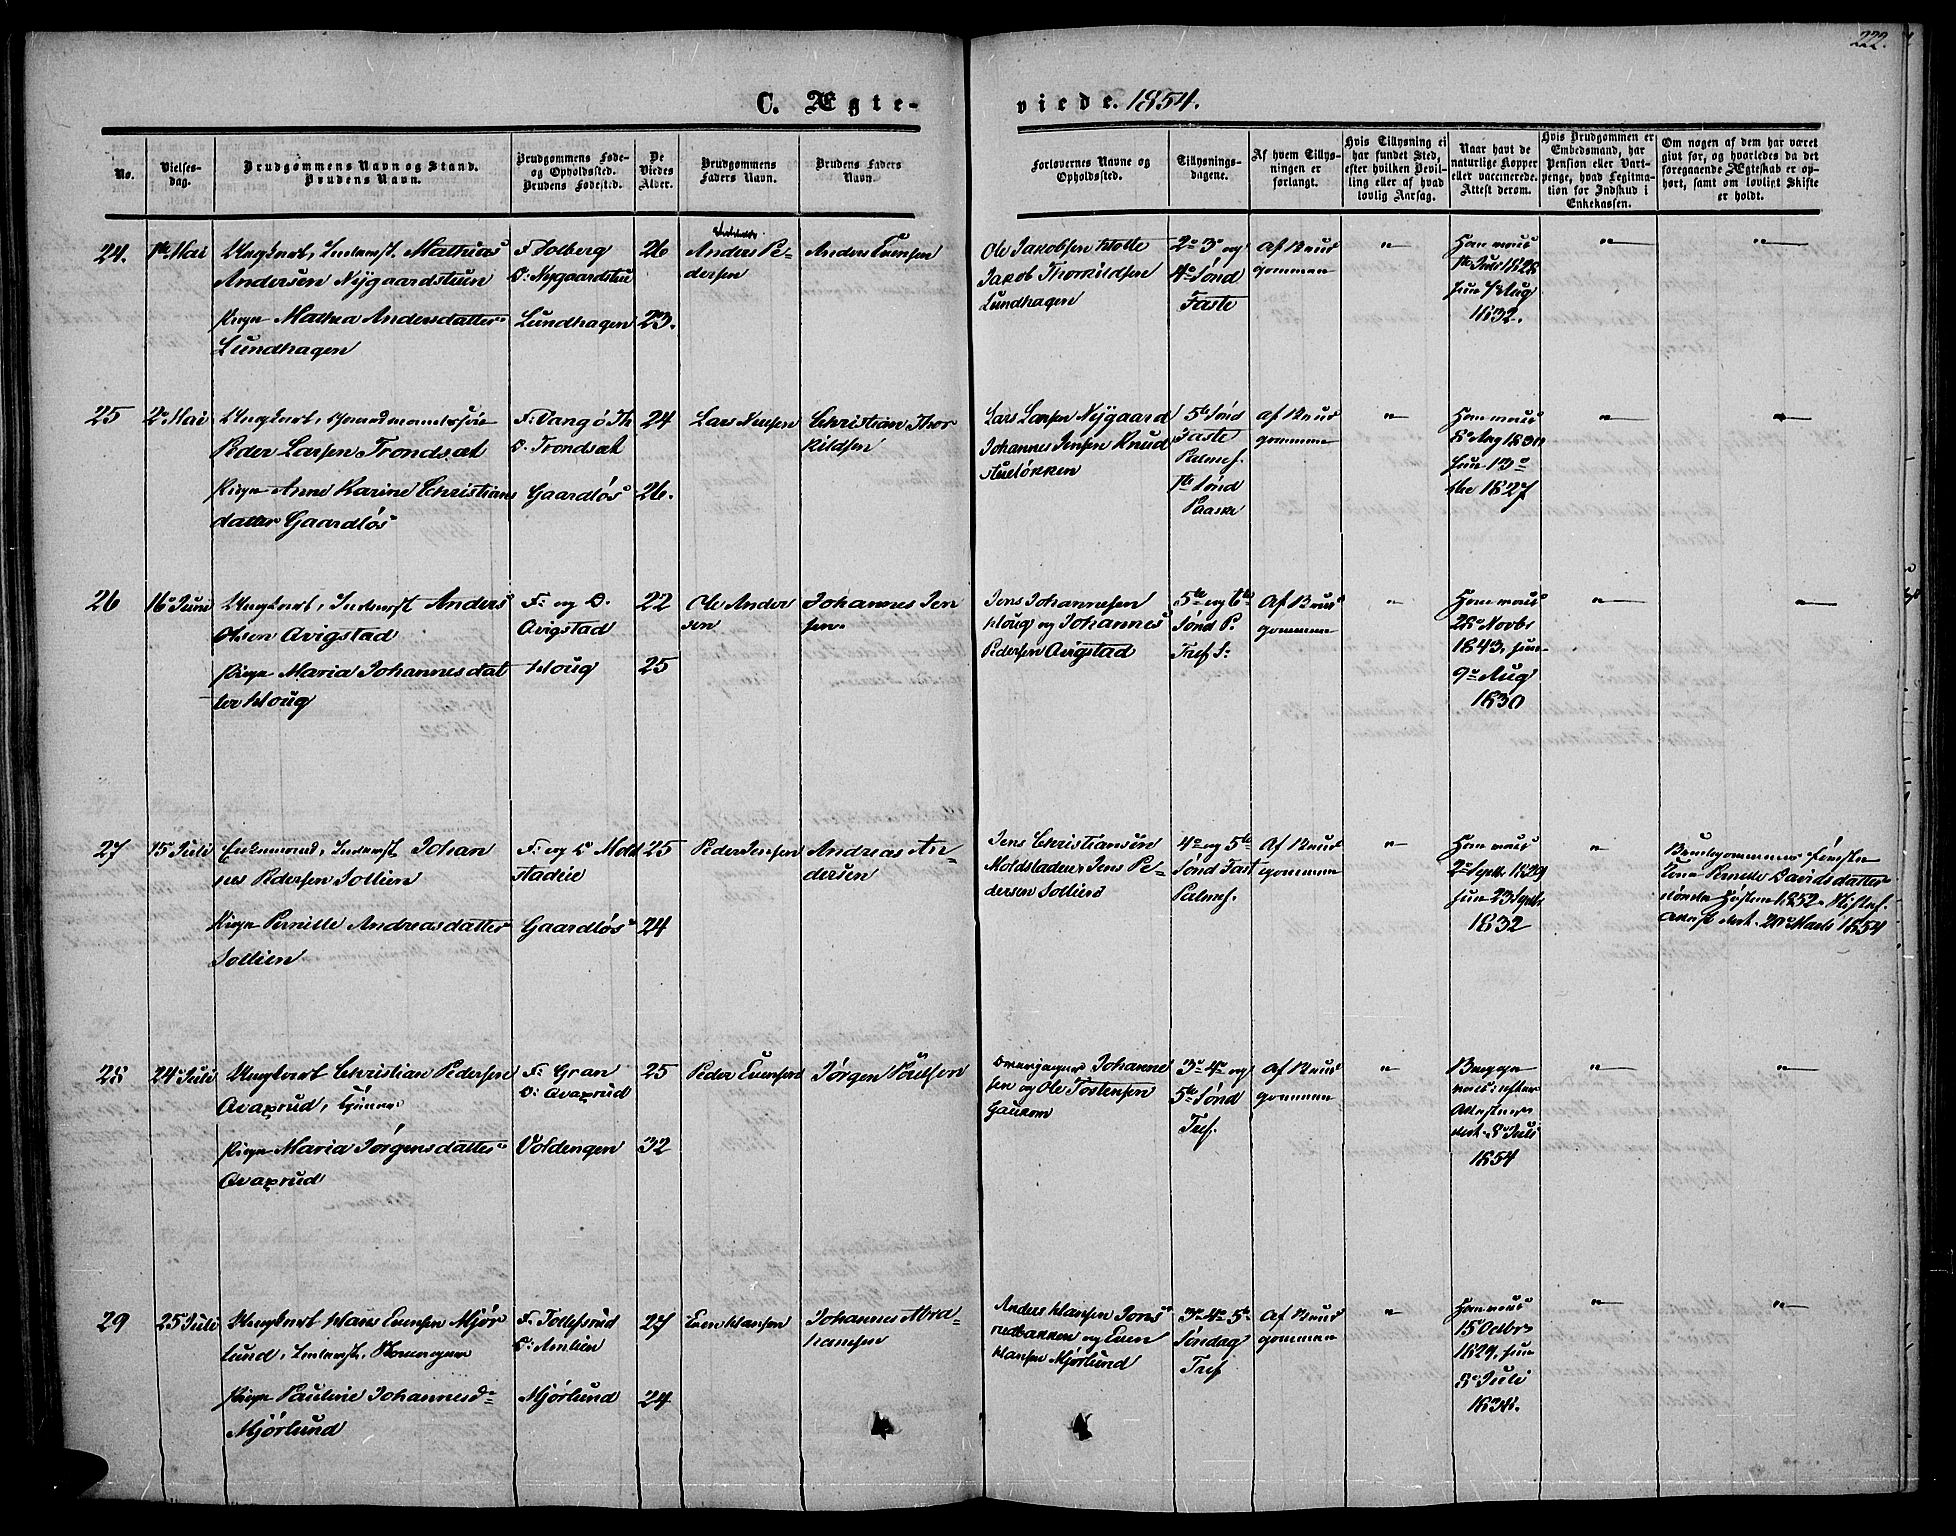 222.
C. Ægte-
viede. 1854.
No.
Vielses-
dag.
Brudgommens Navn og Stand.
Brudens Navn.
Brudgommens Føde-
og Opholdssted.
Brudens Fødested.
De
Viedes
Alder.
Brudgommens
Faders Navn.
Brudens Faders
Navn.
Forlovernes Navne og
Opholdssted.
Tillysnings-
dagene.
Af hvem Tillys-
ningen er
forlangt.
Hvis Tillysning ei
har fundet Sted,
efter hvilken Bevil-
ling eller af hvad
lovlig Aarsag.
Naar havt de
naturlige Kopper
eller vaccinerede.
Attest derom.
Hvis Brudgommen er
Embedsmand, har
Pension eller Vart-
penge, hvad Legitima-
tion for Indskud i
Enkekassen.
Om nogen af dem har været
givt før, og hvorledes da det
foregaaende Ægteskab er op-
hørt, samt om lovligt Skifte
er holdt.
24.
1ste Mai
Ungkarl, Inderst. Mathias
Andersen Nygaardstuen
Pigen Mathea Andersdatter
Lundhagen
F. Solberg
O: Nygaardstue
Lundhagen
26
23.
Anders Pe-
dersen
Anders Evensen
Ole Jakobsen
Jakob Thorkildsen
Lundhagen
2. 3 og
4 Sønd
Faste
Af Brud
gommen
"
1828
7 Aug
1832.
"
"
25
2 Mai
Ungkarl, Gaardmandssøn
Peder Larsen Trondsæt
Pigen Anne Karine Christians
datter Gaardløs
O. Trondsæt
Gaardløs
24
26.
Lars
Christian Thor
kildsen
Lars Larsen Nygaard
Johannes Jensen Knud
stueløkken
5te Sønd
Faste
Palmes.
1ste Sønd
Paaske
Af Brud
gommen
"
8 Aug 1830
1827
"
"
26
16 Juni
Ungkarl, Inderst Anders
Olsen Avigstad
Pigen Maria Johannesdat
ter Houg
F: og O.
Avigstad
Houg
22
25
Ole Ander
sen
Johannes Jen
sen
Jens Johannesen
Houg og Johannes
Pedersen Avigstad
5te og 6te
Sønd P.
Af Brud
gommen
"
28 Novbr
1843,
9 Aug
1830
"
"
27
15 Juli
Enkemand, Inderst Johan
nes Pedersen Sollien
Pigen Pernille Andreasdatter
Sollien
F: og O Mold
stadeie
Gaardløs
25
24
Peder Jensen
Andreas An-
dersen
Jens Christiansen
Moldstadeie, Jens Pe-
dersen Sollien
4 og 5te
Sønd Fast
Palmes.
Af Brud
gommen
"
2 Septb. 1829
23 Septb.
1832
"
Brudgommens første
Kone Pernille Davidsdatter
døde Høsten 1852.
Attest 20 Marts 1854
28
24 Juli
Ungkarl Christian Pedersen
Avaprud,
Pigen Maria Jørgensdatter
Avaprud
F: Gran
O: Avaprud
Voldengen
25
32
Peder Evensen
Jørgen Paulsen
Johanne
sen og Ole Tostensen
3. 4 og
5te Sønd
Tref.
Af Brud
gommen
"
Begge
vac: efter
Attester
8 Juli
1854
"
"
29
25 Juli
Ungkarl Hans Evensen Mjør
lund, Inderst,
Pigen Pauline Johannesd.
Mjørlund
F. Tollefsrud
O: Amlien
Mjørlund
27
24
Even Hansen
Johannes Abra-
hamsen
Anders Hansen
og Even
Hansen Mjørlund
3. 4. 5te
Søndag
Tref
Af Brud
gommen
"
15 Octbr
1829,
8 Juli
"
"